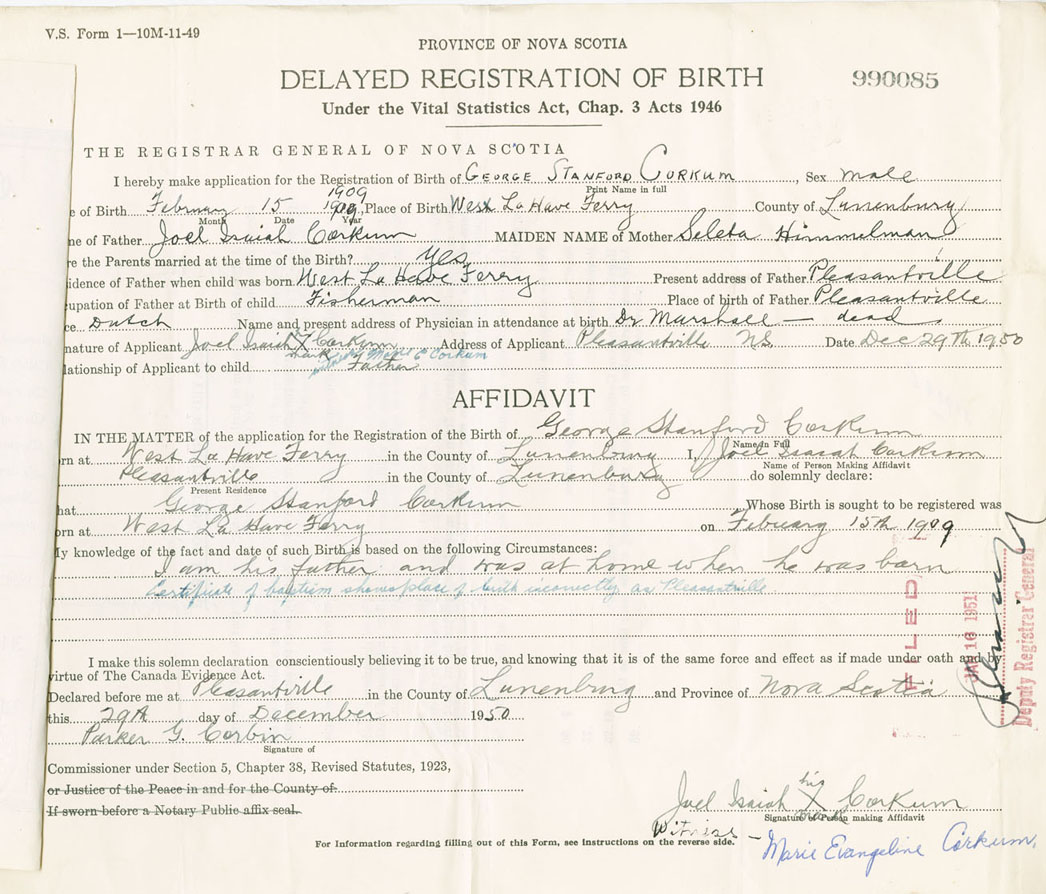 V.S. Form 1—10M-11-49
PROVINCE OF NOVA SCOTIA
DELAYED REGISTRATION OF BIRTH
990085
Under the Vital Statistics Act, Chap. 3 Acts 1946
THE REGISTRAR GENERAL OF NOVA SCOTIA
I hereby make application for the Registration of Birth of GEORGE STANFORD CORKUM, Sex male
Print Name in full
1909
e of Birth February 15 Place of Birth West La Have Ferry County of Lunenburg
Month Date Year
ne of Father Joel Isaiah Corkum MAIDEN NAME of Mother Seleta Himmelman
re the Parents married at the time of the Birth? Yes
idence of Father when child was born West La Have Ferry Present address of Father Pleasantville
upation of Father at Birth of child Fisherman Place of birth of Father Pleasantville
ce Dutch Name and present address of Physician in attendance at birth Dr Marshall — dead
nature of Applicant Joel Isaiah X Corkum Address of Applicant Pleasantville N.S. Date Dec 29th 1950
mark
lationship of Applicant to child Father
AFFIDAVIT
IN THE MATTER of the application for the Registration of the Birth of George Stanford Corkum
Name in Full
rn at West La Have Ferry in the County of Lunenburg I, Joel Isaiah Corkum
Name of Person Making Affidavit
Pleasantville in the County of Lunenburg do solemnly declare:
Present Residence
hat George Stanford Corkum Whose Birth is sought to be registered was
orn at West La Have Ferry on February 15th 1909
My knowledge of the fact and date of such Birth is based on the following Circumstances:
I am his father and was at home when he was born
Certificate of baptism shows place of birth incorrectly as Pleasantville
I make this solemn declaration conscientiously believing it to be true, and knowing that it is of the same force and effect as if made under oath and by
virtue of The Canada Evidence Act.
Declared before me at Pleasantville in the County of Lunenburg and Province of Nova Scotia
this 29th day of December 1950
Parker G. Corbin
Signature of
Commissioner under Section 5, Chapter 38, Revised Statutes, 1923,
or Justice of the Peace in and for the County of
If sworn before a Notary Public affix seal.
his
Joel Isaiah X Corkum
mark
Signature of Person making Affidavit
Witness — Marie Evangeline Corkum.
For Information regarding filling out of this Form, see instructions on the reverse side.
FILED
JAN 16 1951
Deputy Registrar General